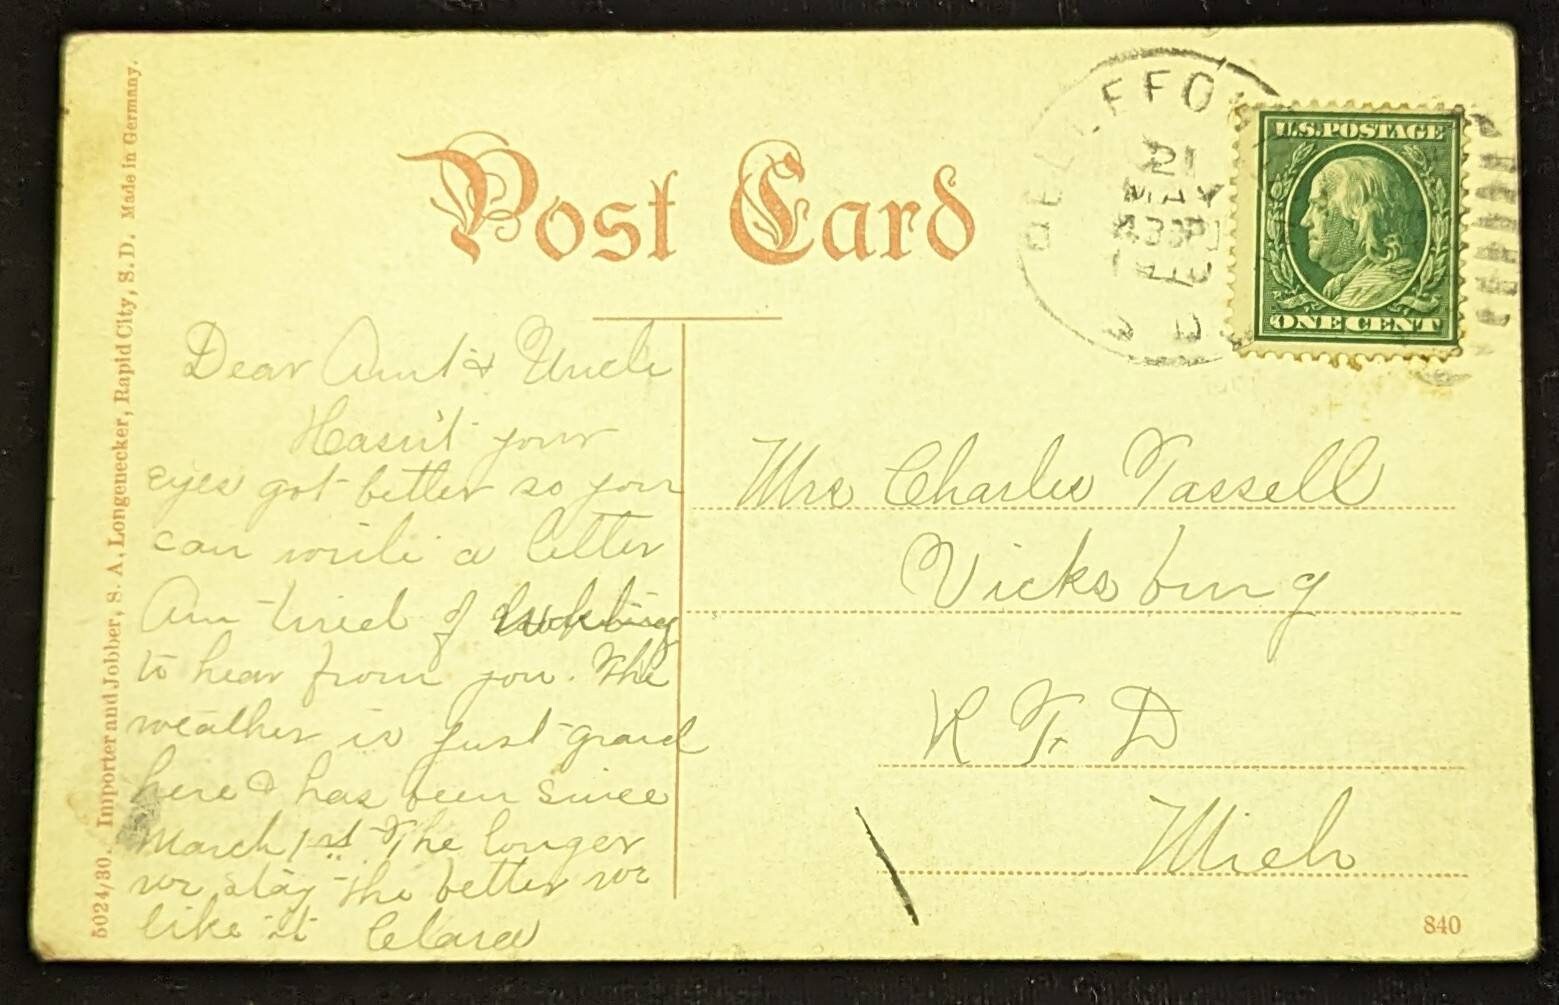 Post Card
U.S. POSTAGE
ONE CENT
Dear Aunt & Uncle
Hasn't your
eyes got better so you
can write a letter
Am tired of looking
to hear from you. The
weather is just grand
here & has been since
March 1st The longer
we stay the better we
like it Clara
Mrs Charles Tassell
Vicksburg
R F D
Mich
5024/30. Importer and Jobber, S. A. Longenecker, Rapid City, S. D. Made in Germany.
840